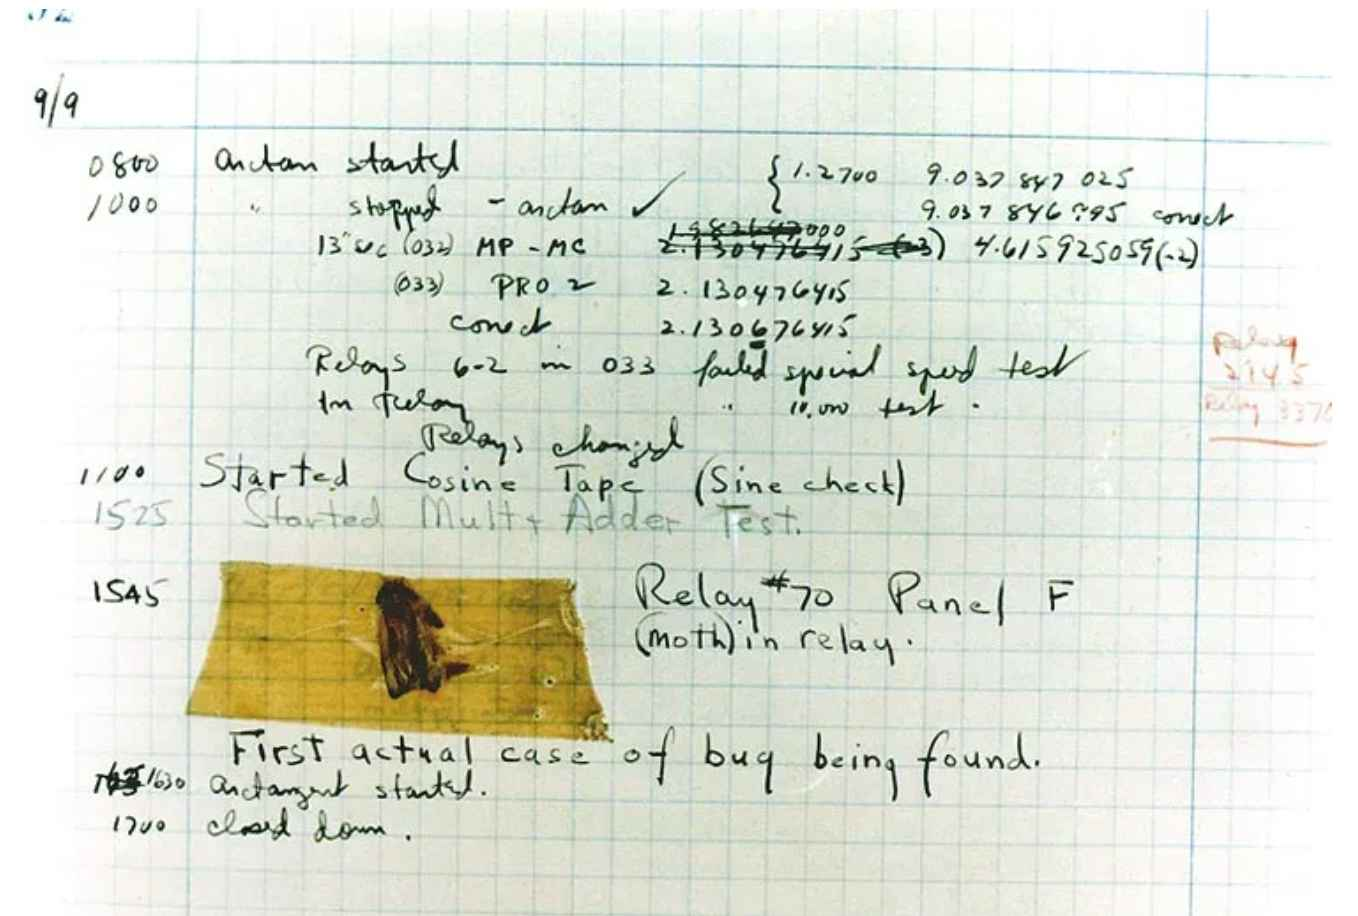 9/9
0800 arctan started { 1.2700 9.037 847 025
1000 " stopped - arctan ✓ 9.037 846 995 correct
13"sec (032) MP - MC 2.130476415 4.615925059(-2)
(033) PRO 2 2.130476415
correct 2.130676415
Relays 6-2 in 033 failed special speed test
In Relay " 10.000 test .
Relays changed
Relay
2145
Relay 3370
1100 Started Cosine Tape (Sine check)
1525 Started Mult + Adder Test.
1545 Relay #70 Panel F
(moth) in relay.
First actual case of bug being found.
1630 arctangent started.
1700 closed down .